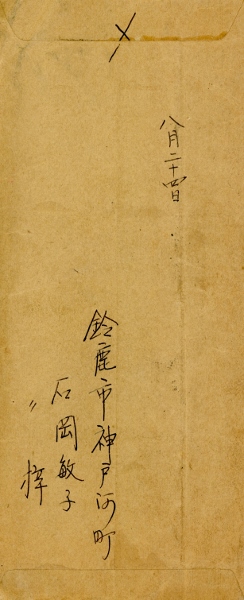 〆
八月二十四日
鈴鹿市神戸河町
石岡敏子
〃 梓